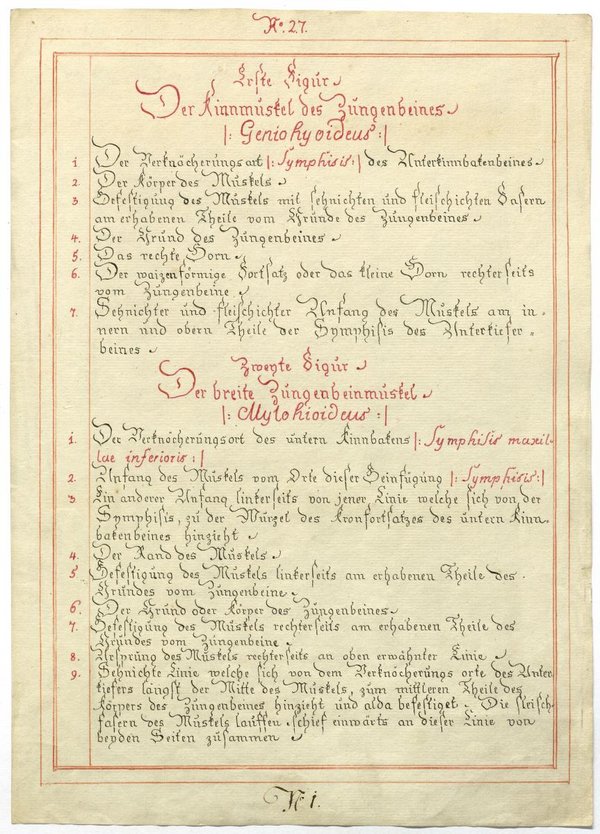 No. 27.
Erste Figur
Der Kinnmuskel des Zungenbeines
|: Geniohyoideus :|
1 Der Verknöcherungsort |: Symphisis :| des Unterkinnbakenbeines
2. Der Körper des Muskels
3 Befestigung des Muskels mit sehnichten und fleischichten Fasern
am erhabenen Theile vom Grunde des Zungenbeines
4. Der Grund des Zungenbeines
5. Das rechte Horn
6. Der waizenförmige Fortsatz oder das kleine Horn rechterseits
vom Zungenbeine
7. Sehnichter und fleischichter Anfang des Muskels am in-
nern und obern Theile der Symphisis des Unterkiefer-
beines
Zweyte Figur
Der breite Zungenbeinmuskel
|: Mylohioideus :|
1. Der Verknöcherungsort des untern Kinnbakens |: Symphisis maxil-
lae inferioris :|
2. Anfang des Muskels vom Orte dieser Beinfügung |: Symphisis :|
3 Ein anderer Anfang linkerseits von jener Linie welche sich von der
Symphisis, zu der Wurzel des Kronfortsatzes des untern Kinn-
bakenbeines hinzieht
4. Der Rand des Muskels
5 Befestigung des Muskels linkerseits am erhabenen Theile des
Grundes vom Zungenbeine
6. Der Grund oder Körper des Zungenbeines
7. Befestigung des Muskels rechterseits am erhabenen Theile des
Grundes vom Zungenbeine
8. Ursprung des Muskels rechterseits an oben erwähnter Linie
9. Sehnichte Linie welche sich von dem Verknöcherungs orte des Unter
kiefers längst der Mitte des Muskels, zum mittleren Theile des
Körpers des Zungenbeines hinzieht und alda befestiget. Die fleisch-
fasern des Muskels lauffen schief einwärts an dieser Linie von
beyden Seiten zusammen
No 1.